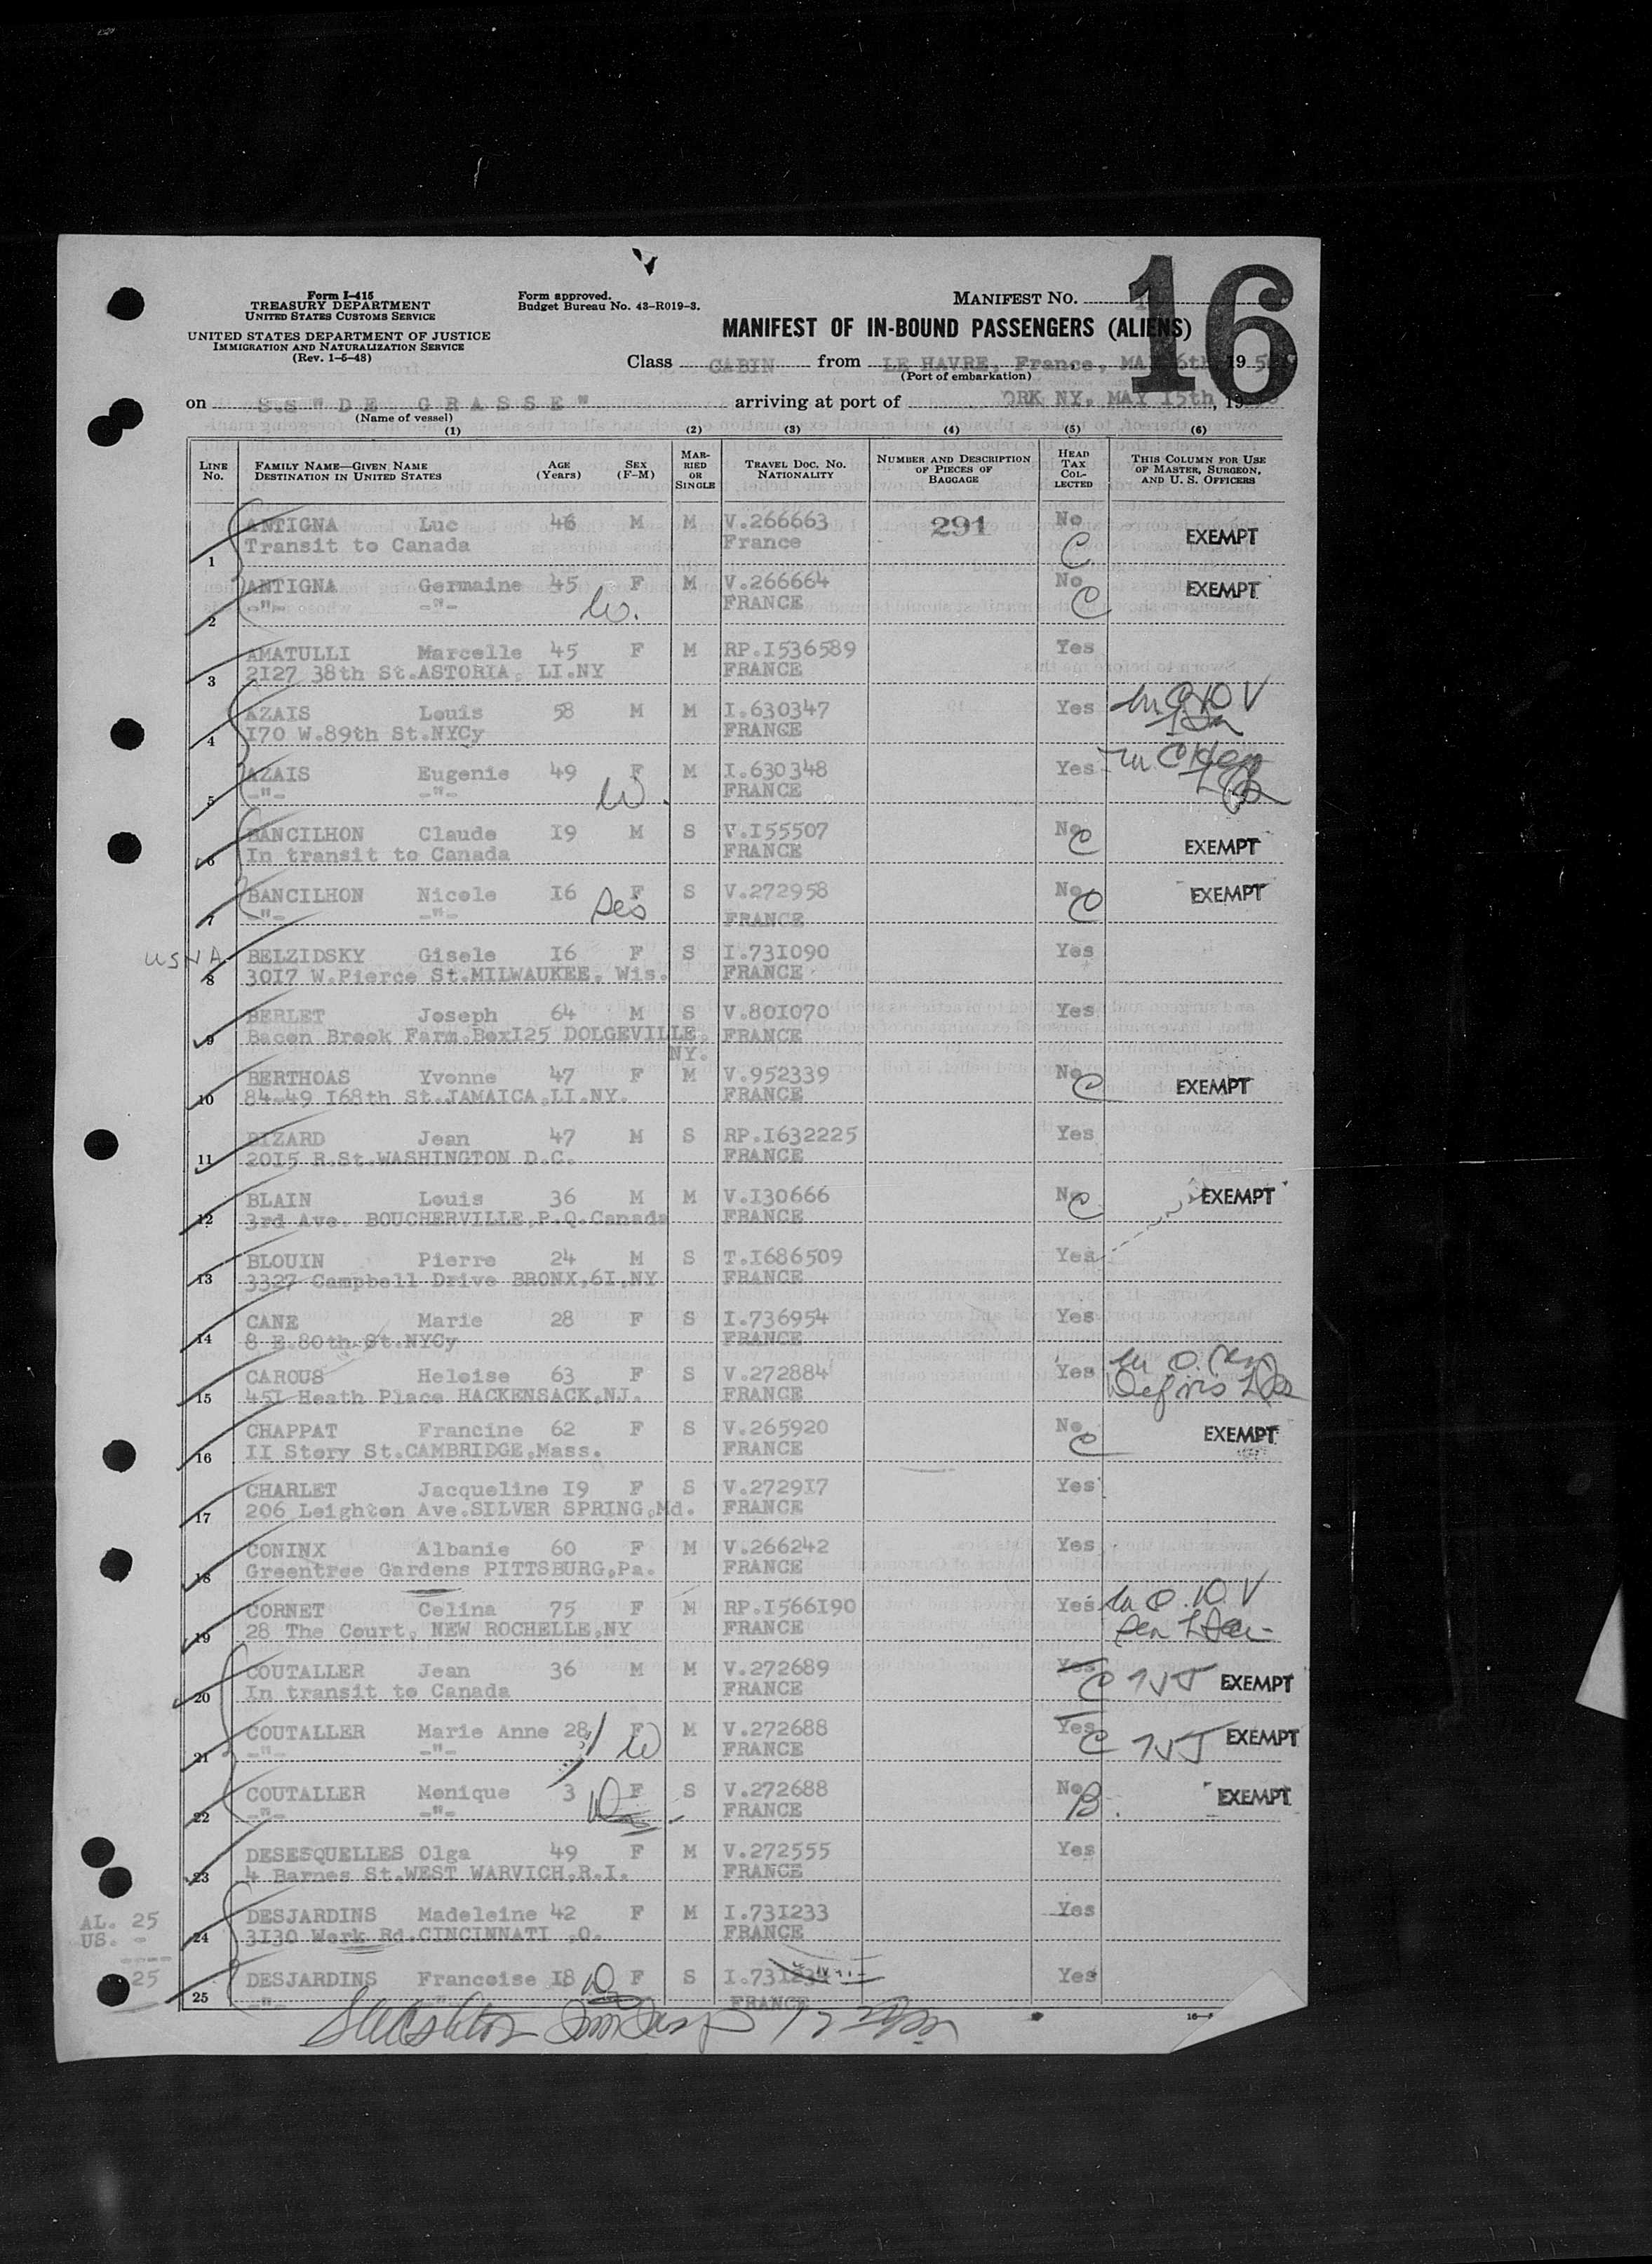 Form I-415
TREASURY DEPARTMENT
UNITED STATES CUSTOMS SERVICE
UNITED STATES DEPARTMENT OF JUSTICE
IMMIGRATION AND NATURALIZATION SERVICE
(Rev. 1-5-48)
Form approved.
Budget Bureau No. 43-R019-3.
MANIFEST NO.
16
MANIFEST OF IN-BOUND PASSENGERS (ALIENS)
Class CABIN from LE HAVRE, France, MAY 6th 19
(Port of embarkation)
on S.S "DE GRASSE" arriving at port of ORK NY, MAY 15th, 19
(Name of vessel)
(1) (2) (3) (4) (5) (6)
LINE No. FAMILY NAME—GIVEN NAME DESTINATION IN UNITED STATES AGE (Years) SEX (F-M) MARRIED OR SINGLE TRAVEL DOC. NO. NATIONALITY NUMBER AND DESCRIPTION OF PIECES OF BAGGAGE HEAD TAX COLLECTED THIS COLUMN FOR USE OF MASTER, SURGEON, AND U. S. OFFICERS
ANTIGNA Luc 46 M M V.266663 291 No EXEMPT
1 Transit to Canada France C
ANTIGNA Germaine 45 F M V.266664 No EXEMPT
2 -"- -"- W. FRANCE C
AMATULLI Marcelle 45 F M RP.I536589 Yes
3 2I27 38th St.ASTORIA, LI.NY FRANCE
AZAIS Louis 58 M M I.630347 Yes
4 I70 W.89th St.NYCy FRANCE
AZAIS Eugenie 49 F M I.630348 Yes
5 -"- -"- W. FRANCE
BANCILHON Claude I9 M S V.I55507 No EXEMPT
6 In transit to Canada FRANCE C
BANCILHON Nicole I6 F S V.272958 No EXEMPT
7 -"- -"- FRANCE C
USNA BELZIDSKY Gisele I6 F S I.73I090 Yes
8 30I7 W.Pierce St.MILWAUKEE, Wis. FRANCE
BERLET Joseph 64 M S V.80I070 Yes
9 Bacon Brook Farm.BoxI25 DOLGEVILLE, NY. FRANCE
BERTHOAS Yvonne 47 F M V.952339 No EXEMPT
10 84-49 I68th St.JAMAICA,LI.NY. FRANCE C
BIZARD Jean 47 M S RP.I632225 Yes
11 20I5 R.St.WASHINGTON D.C. FRANCE
BLAIN Louis 36 M M V.I30666 No EXEMPT
12 3rd Ave. BOUCHERVILLE,P.Q.Canada FRANCE C
BLOUIN Pierre 24 M S T.I686509 Yes
13 3327 Campbell Drive BRONX,6I,NY FRANCE
CANE Marie 28 F S I.736954 Yes
14 8 E.80th St.NYCy FRANCE
CAROUS Heloise 63 F S V.272884 Yes
15 45I Heath Place HACKENSACK,NJ. FRANCE
CHAPPAT Francine 62 F S V.265920 No EXEMPT
16 II Story St.CAMBRIDGE,Mass. FRANCE C
CHARLET Jacqueline I9 F S V.2729I7 Yes
17 206 Leighton Ave.SILVER SPRING,Md. FRANCE
CONINX Albanie 60 F M V.266242 Yes
18 Greentree Gardens PITTSBURG,Pa. FRANCE
CORNET Celina 75 F M RP.I566I90 Yes
19 28 The Court, NEW ROCHELLE,NY FRANCE
COUTALLER Jean 36 M M V.272689 Yes EXEMPT
20 In transit to Canada FRANCE C
COUTALLER Marie Anne 28 F M V.272688 Yes EXEMPT
21 -"- -"- W FRANCE C
COUTALLER Monique 3 F S V.272688 No EXEMPT
22 -"- -"- D FRANCE B
DESESQUELLES Olga 49 F M V.272555 Yes
23 4 Barnes St.WEST WARVICH,R.I. FRANCE
DESJARDINS Madeleine 42 F M I.73I233 Yes
24 3I30 Werk Rd.CINCINNATI ,O. FRANCE
DESJARDINS Francoise I8 D F S Yes
25 -"- " FRANCE
AL. 25
US. -
----
25